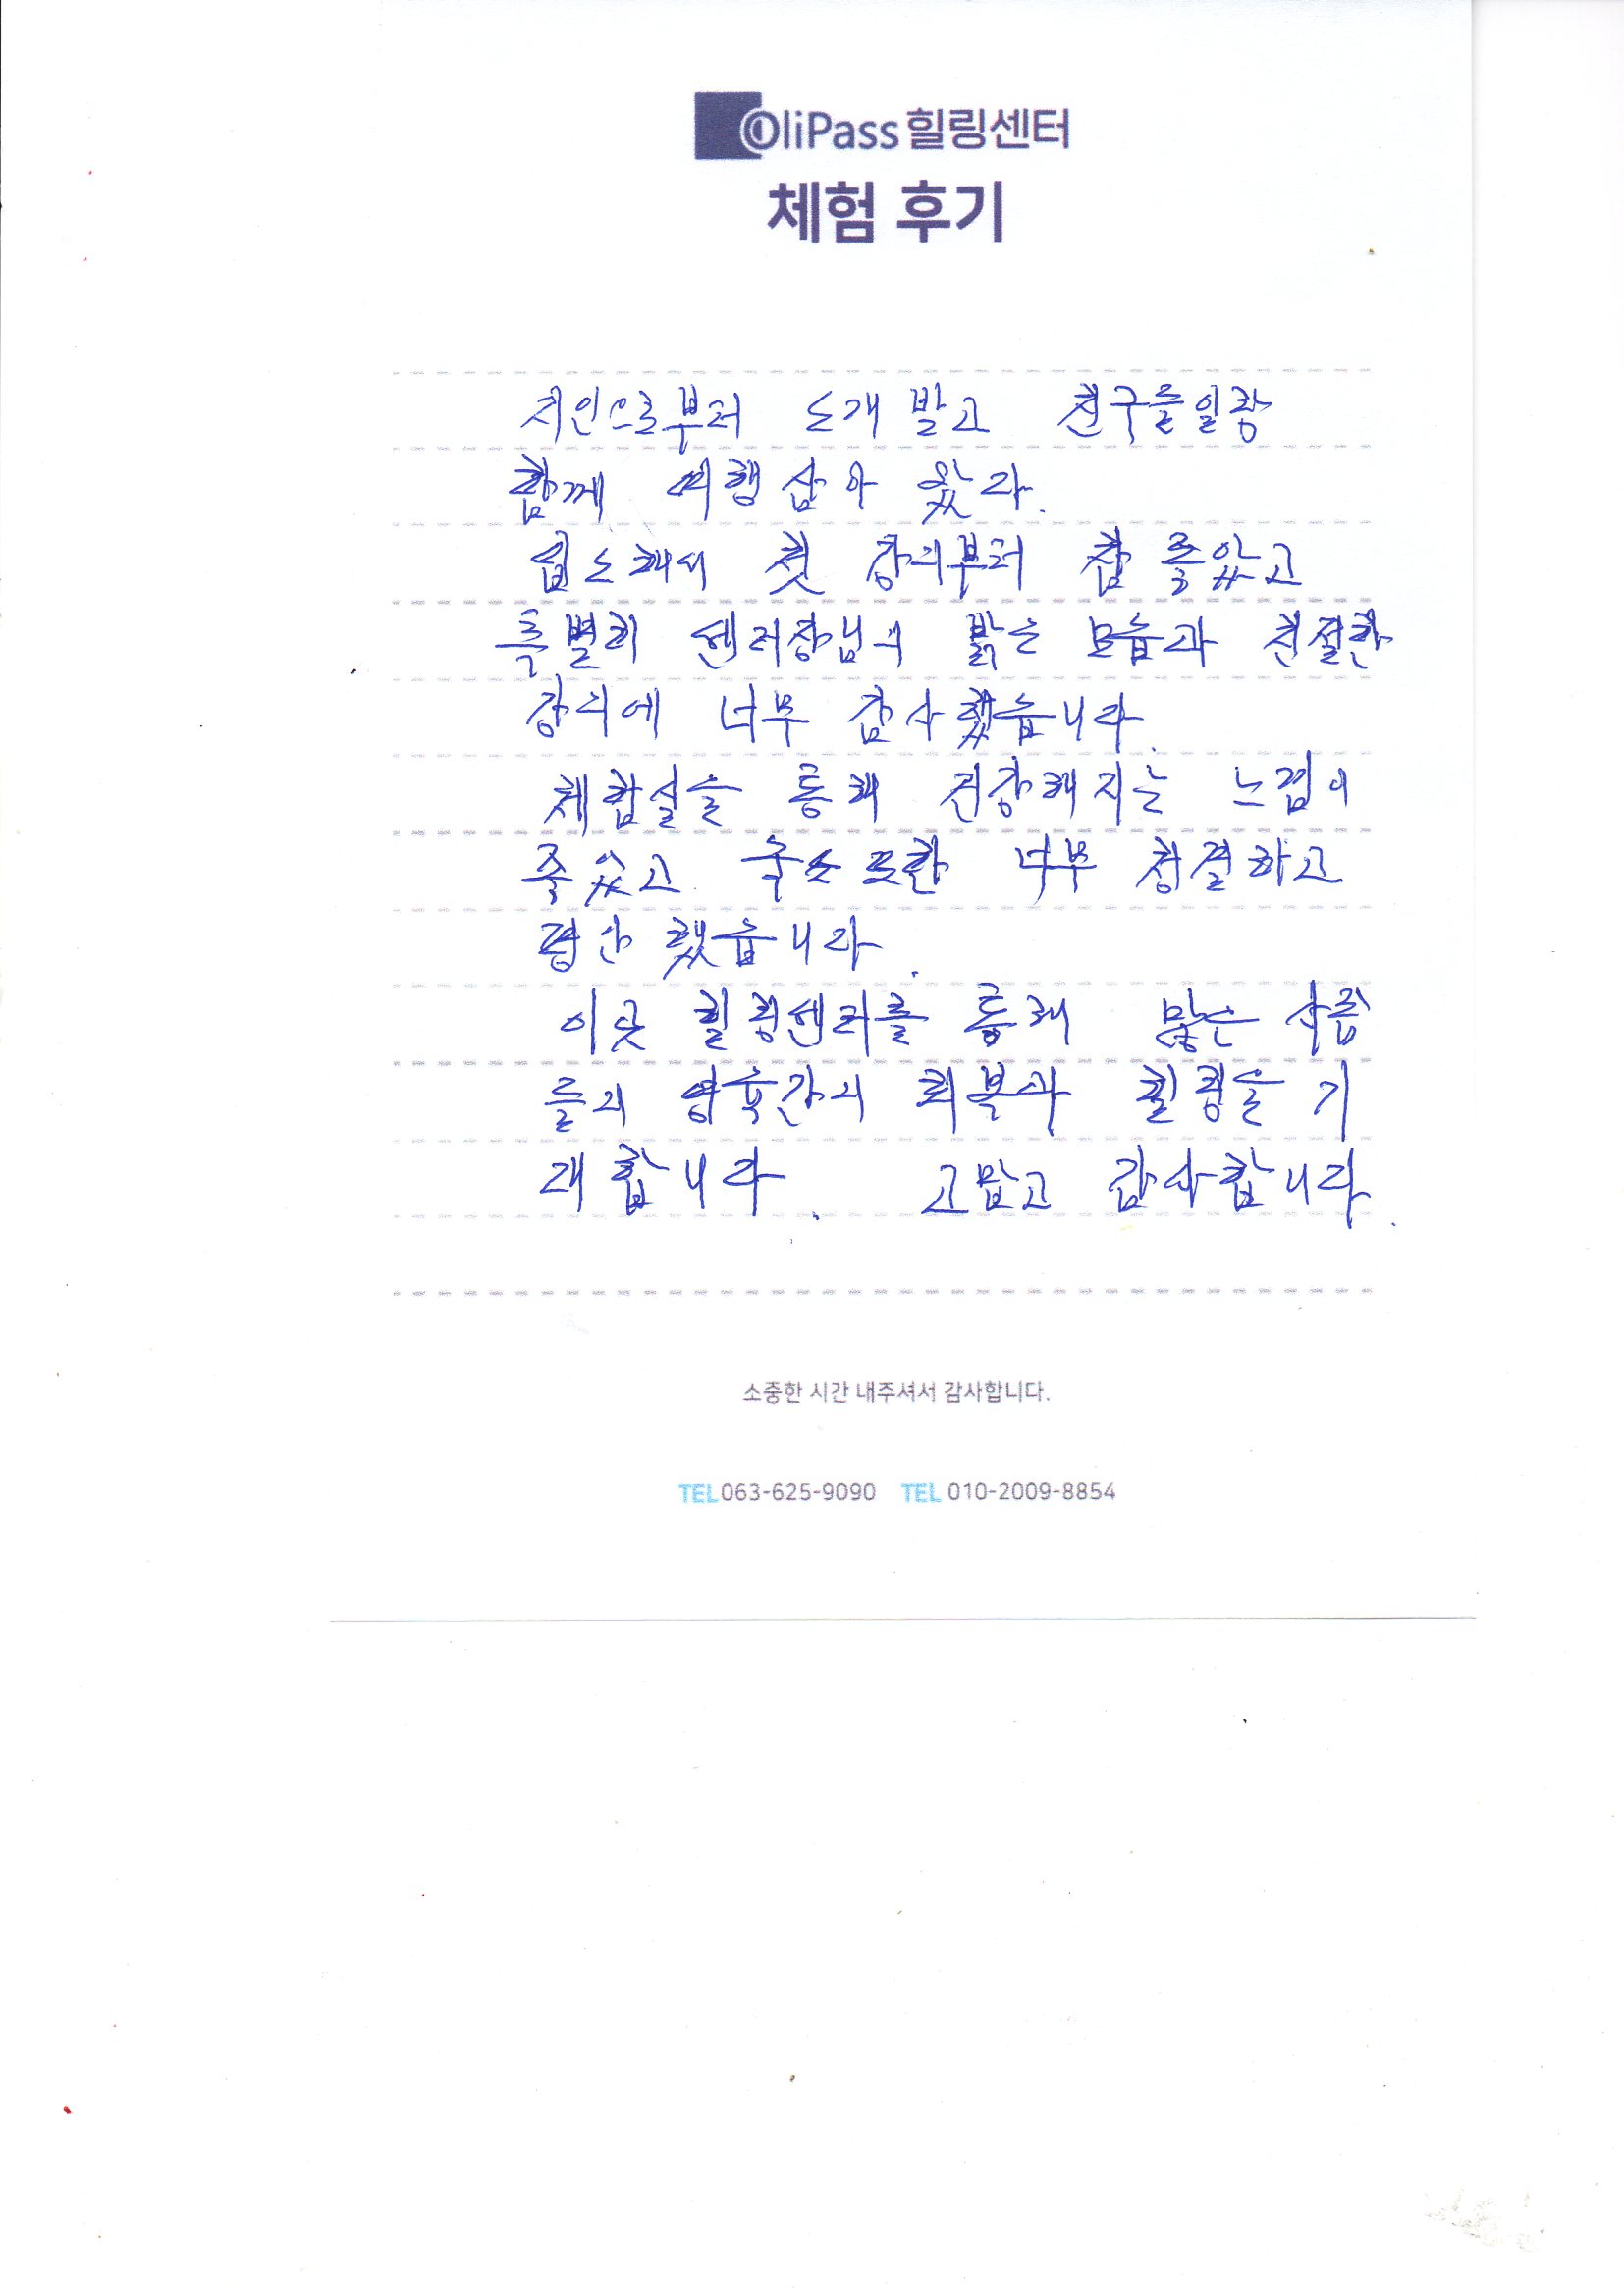 OliPass 힐링센터
체험 후기
지인으로부터 소개 받고 친구들이랑
함께 여행삼아 왔다.
첫 강의부터 참 좋았고
특별히 센터장님의 밝은 모습과 친절한
강의에 너무 감사했습니다.
체험실을 통해 건강해지는 느낌이
좋았고 숙소 또한 너무 청결하고
평안 했습니다.
이곳 힐링센터를 통해 많은 사람
들의 영육간의 회복과 힐링을 기
대합니다. 고맙고 감사합니다.
소중한 시간 내주셔서 감사합니다.
TEL 063-625-9090 TEL 010-2009-8854